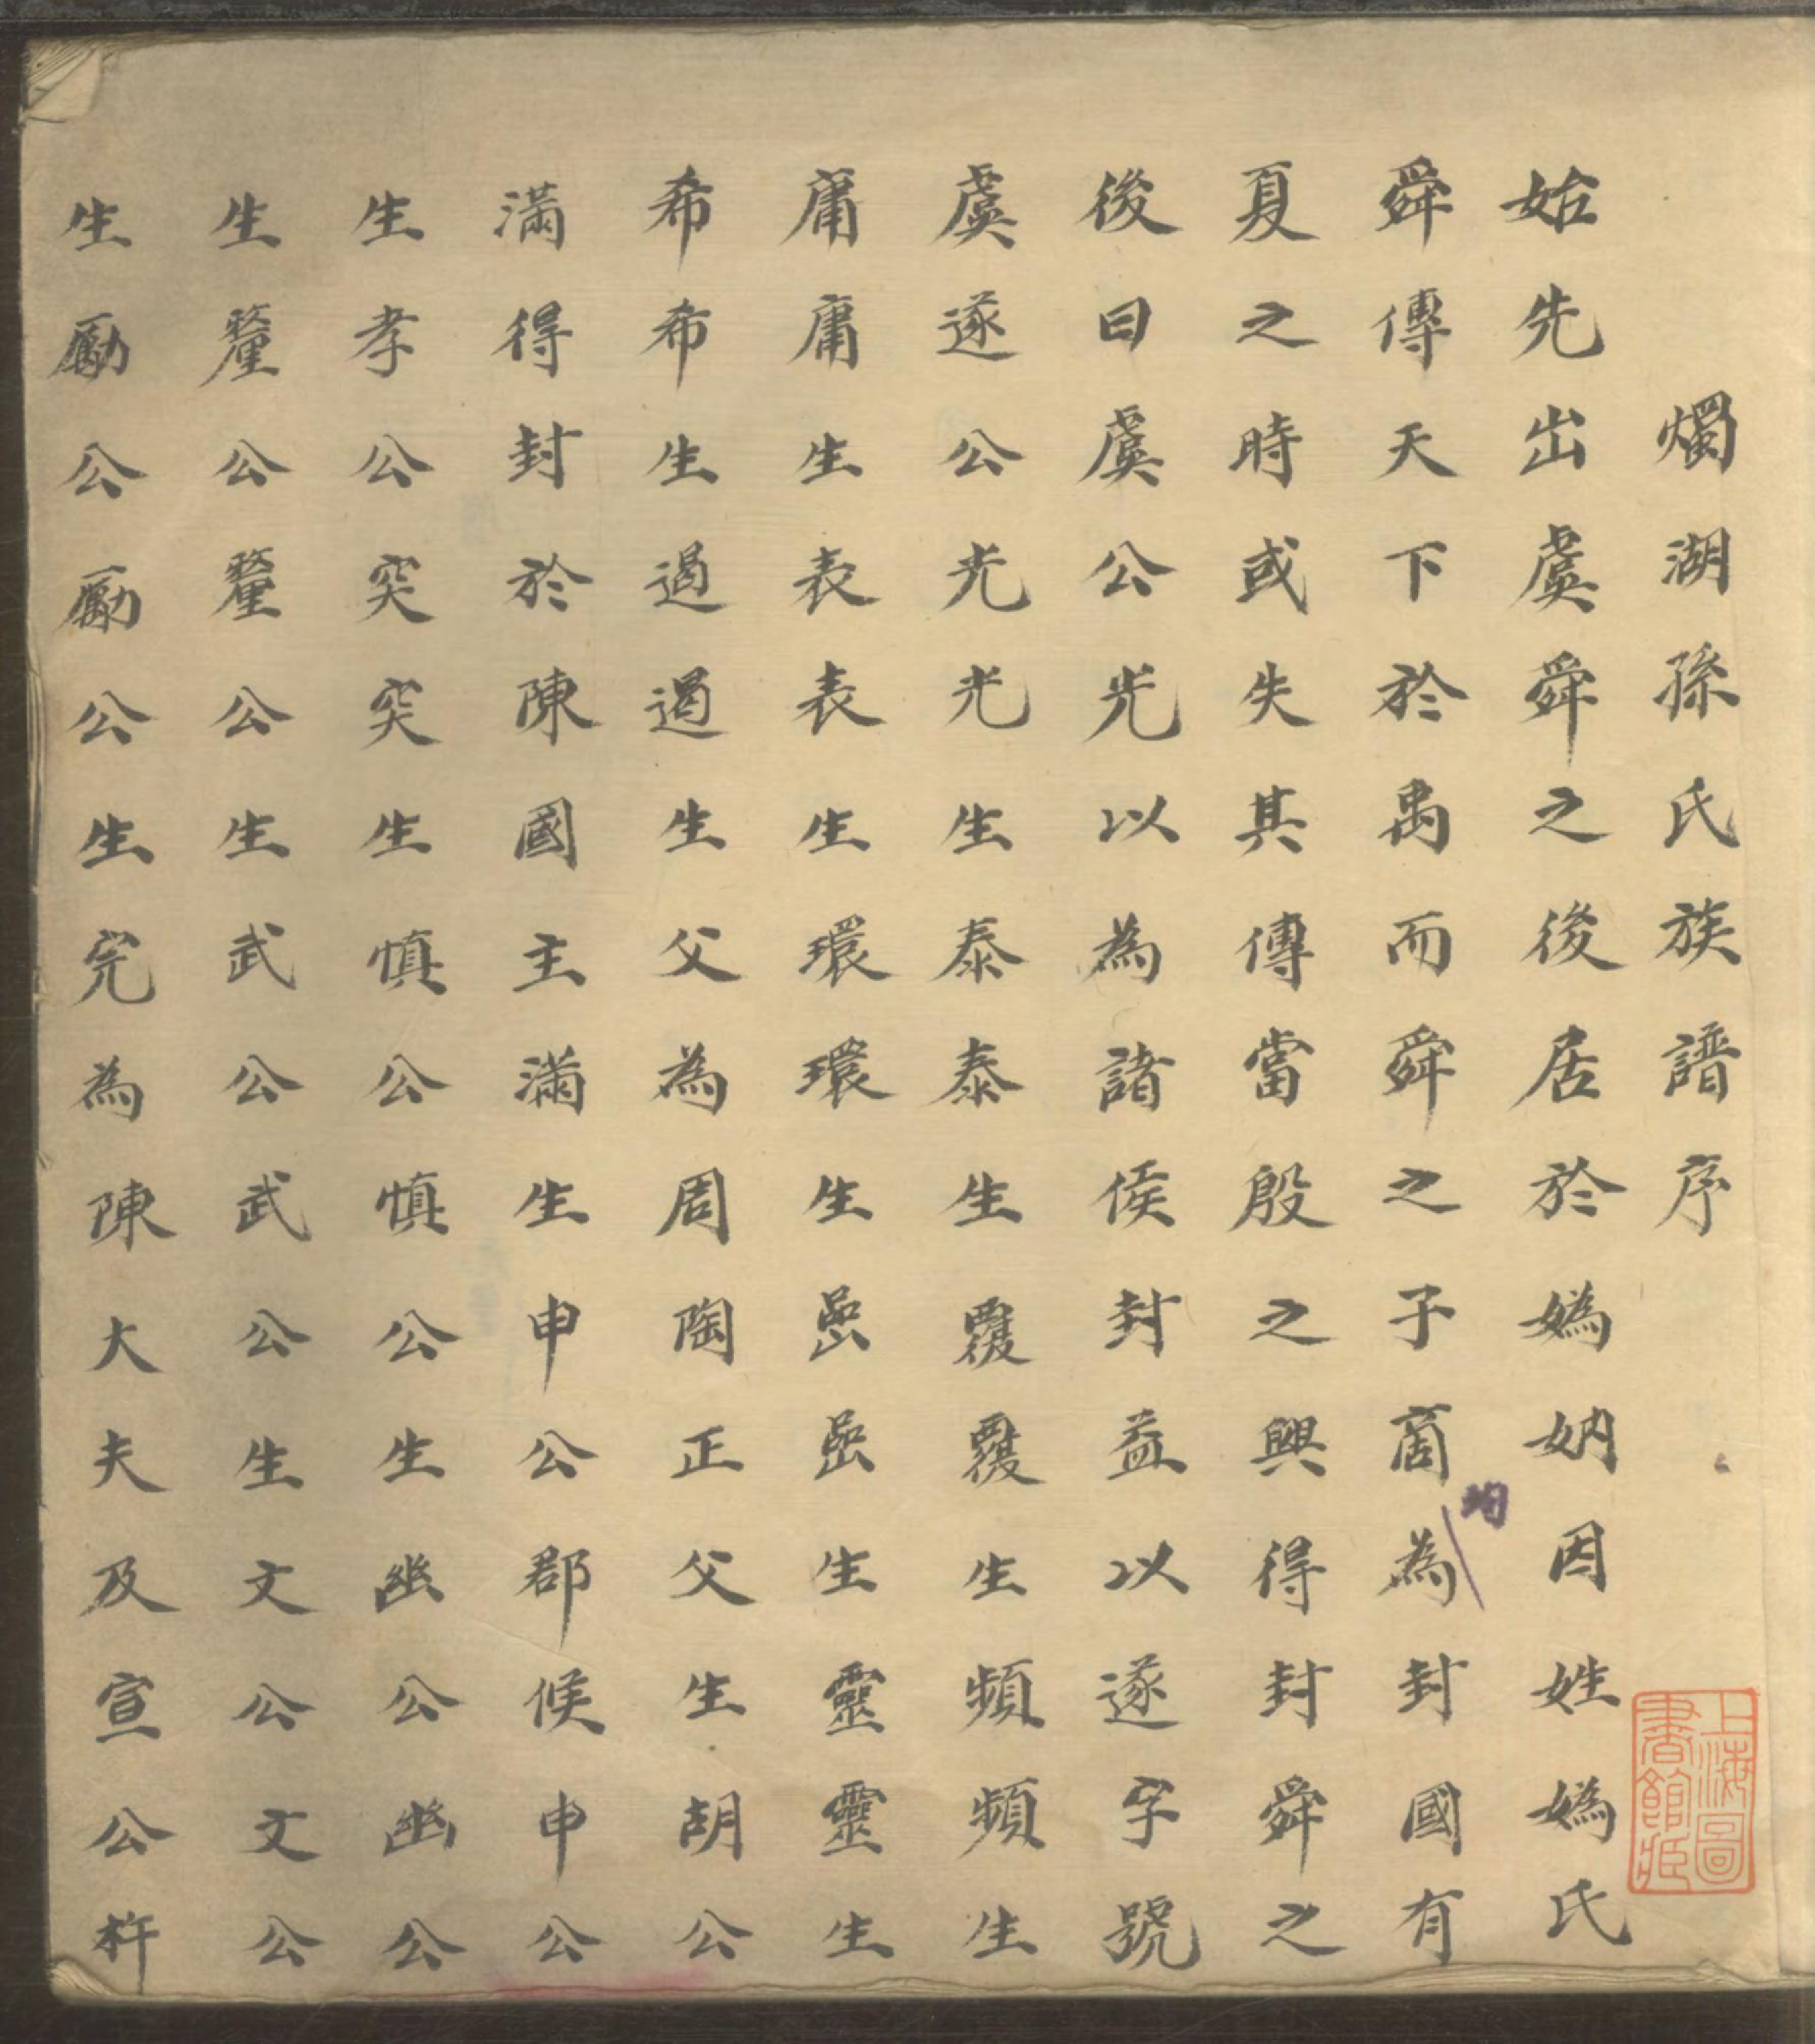 燭湖孫氏族譜序
始先出虞舜之後居於媯妠因姓媯氏
舜傳天下於禹而舜之子商為封國有
均
夏之時或失其傳當殷之興得封舜之
後曰虞公光以為諸侯封益以遂字號
虞遂公光光生泰泰生覆覆生頻頻生
庸庸生表表生環環生嵒嵒生靈靈生
希希生遏遏生父為周陶正父生胡公
滿得封於陳國主滿生申公郡候申公
生孝公突突生慎公慎公生幽公幽公
生釐公釐公生武公武公生文公文公
生勵公勵公生完為陳大夫及宣公杵
上海圖書館藏